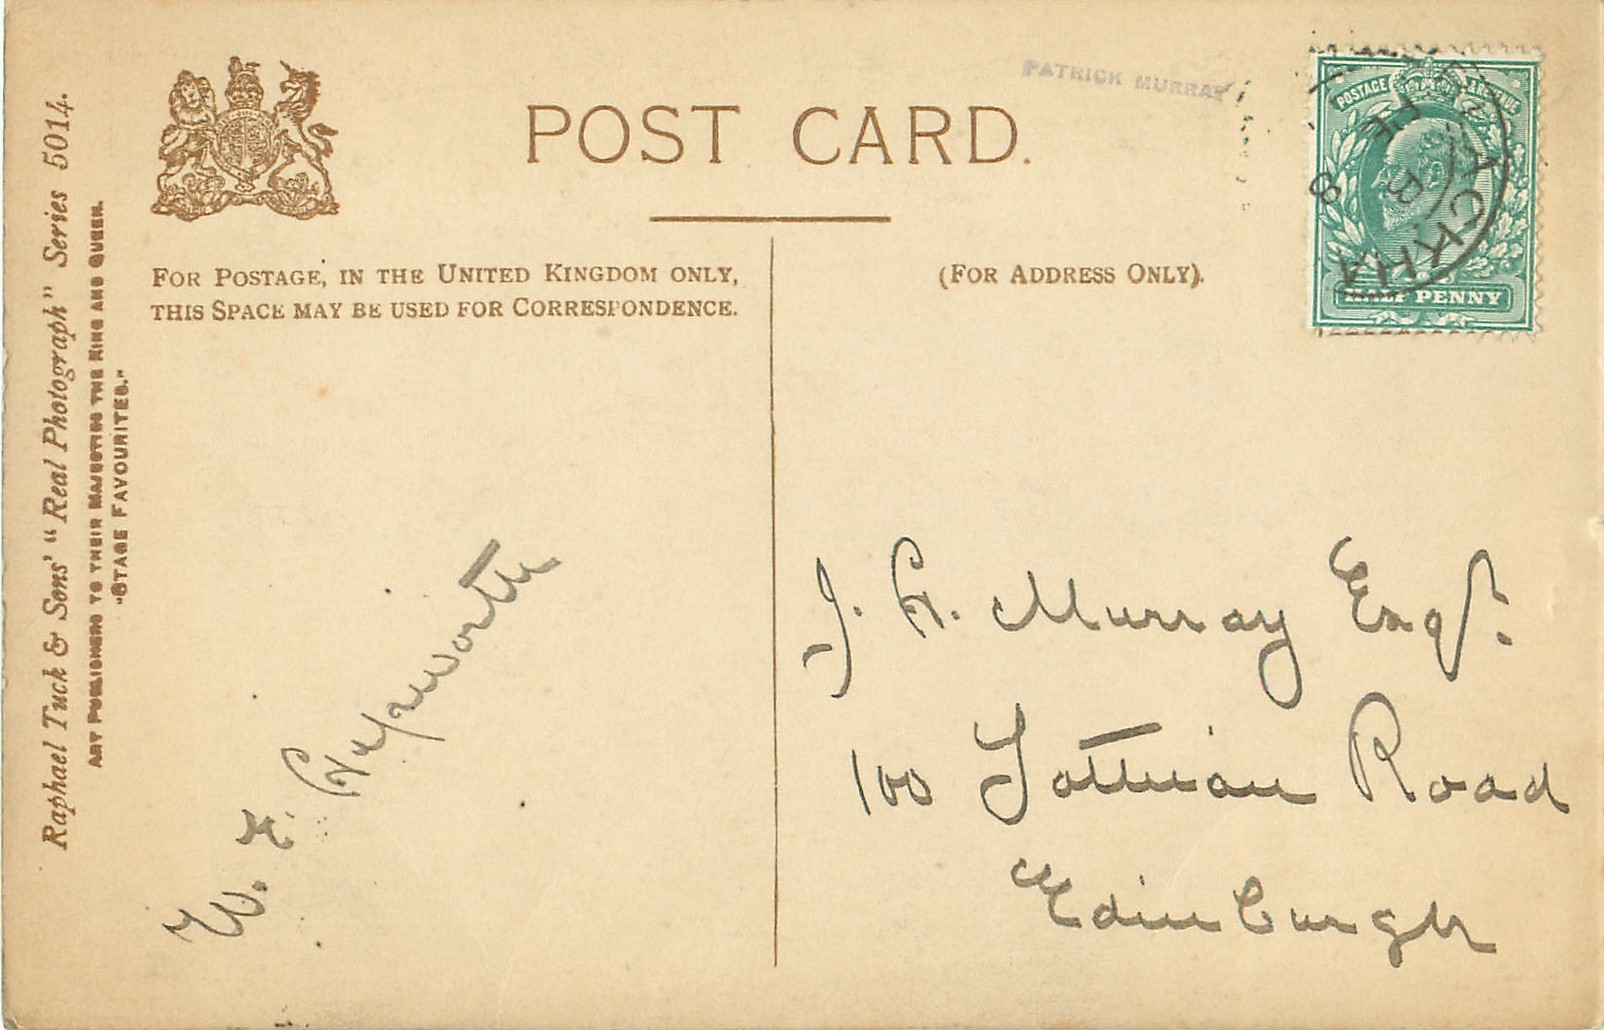 Raphael Tuck & Sons' "Real Photograph" Series 5014.
ART PUBLISHERS TO THEIR MAJESTIES THE KING AND QUEEN.
"STAGE FAVOURITES."
POST CARD.
PATRICK MURRAY
POSTAGE REVENUE
HALF PENNY
FOR POSTAGE, IN THE UNITED KINGDOM ONLY,
THIS SPACE MAY BE USED FOR CORRESPONDENCE.
(FOR ADDRESS ONLY).
J. H. Murray Esqr.
100 Road
Edinburgh